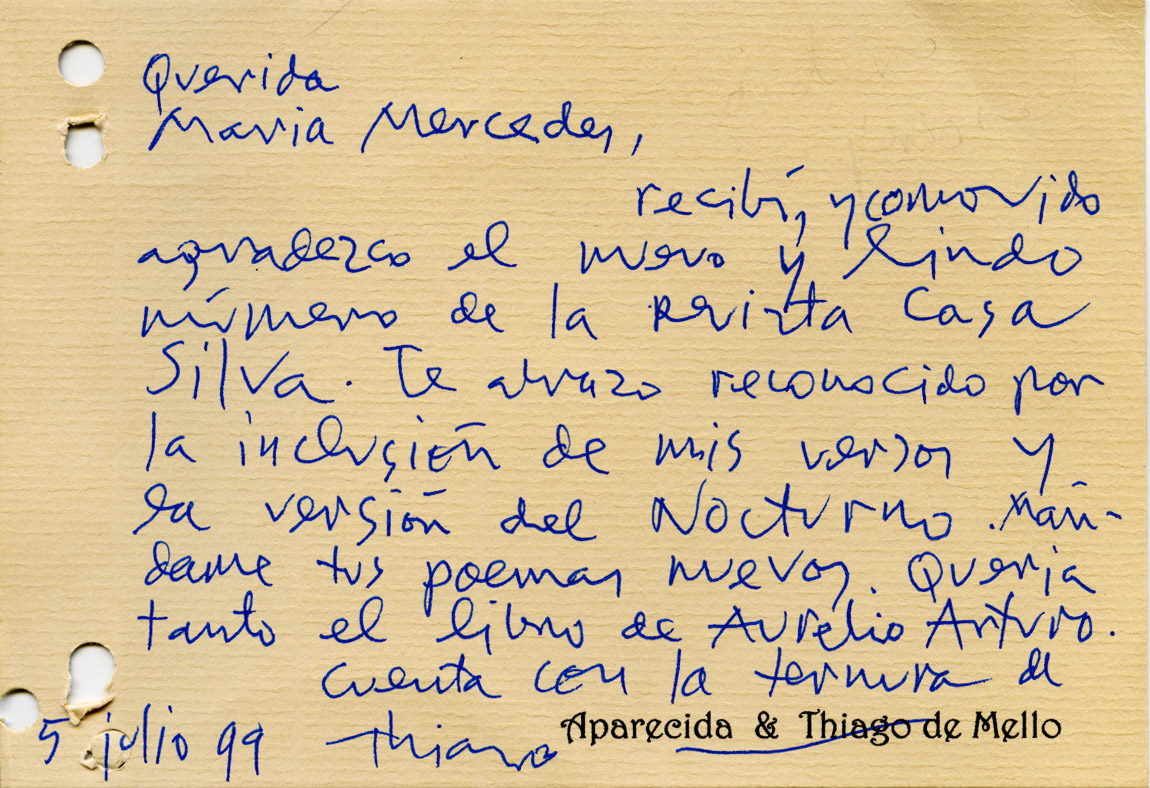 Querida
Maria Mercedes,
recibí, y conmovido
agradezco el nuevo y lindo
número de la revista Casa
Silva. Te abrazo reconocido por
la inclusión de mis versos y
la versión del Nocturno. Mán-
dame tus poemas nuevos. Queria
tanto el libro de Aurélio Arturo.
Cuenta con la ternura de
Aparecida & Thiago de Mello
5 julio 99 Thiago